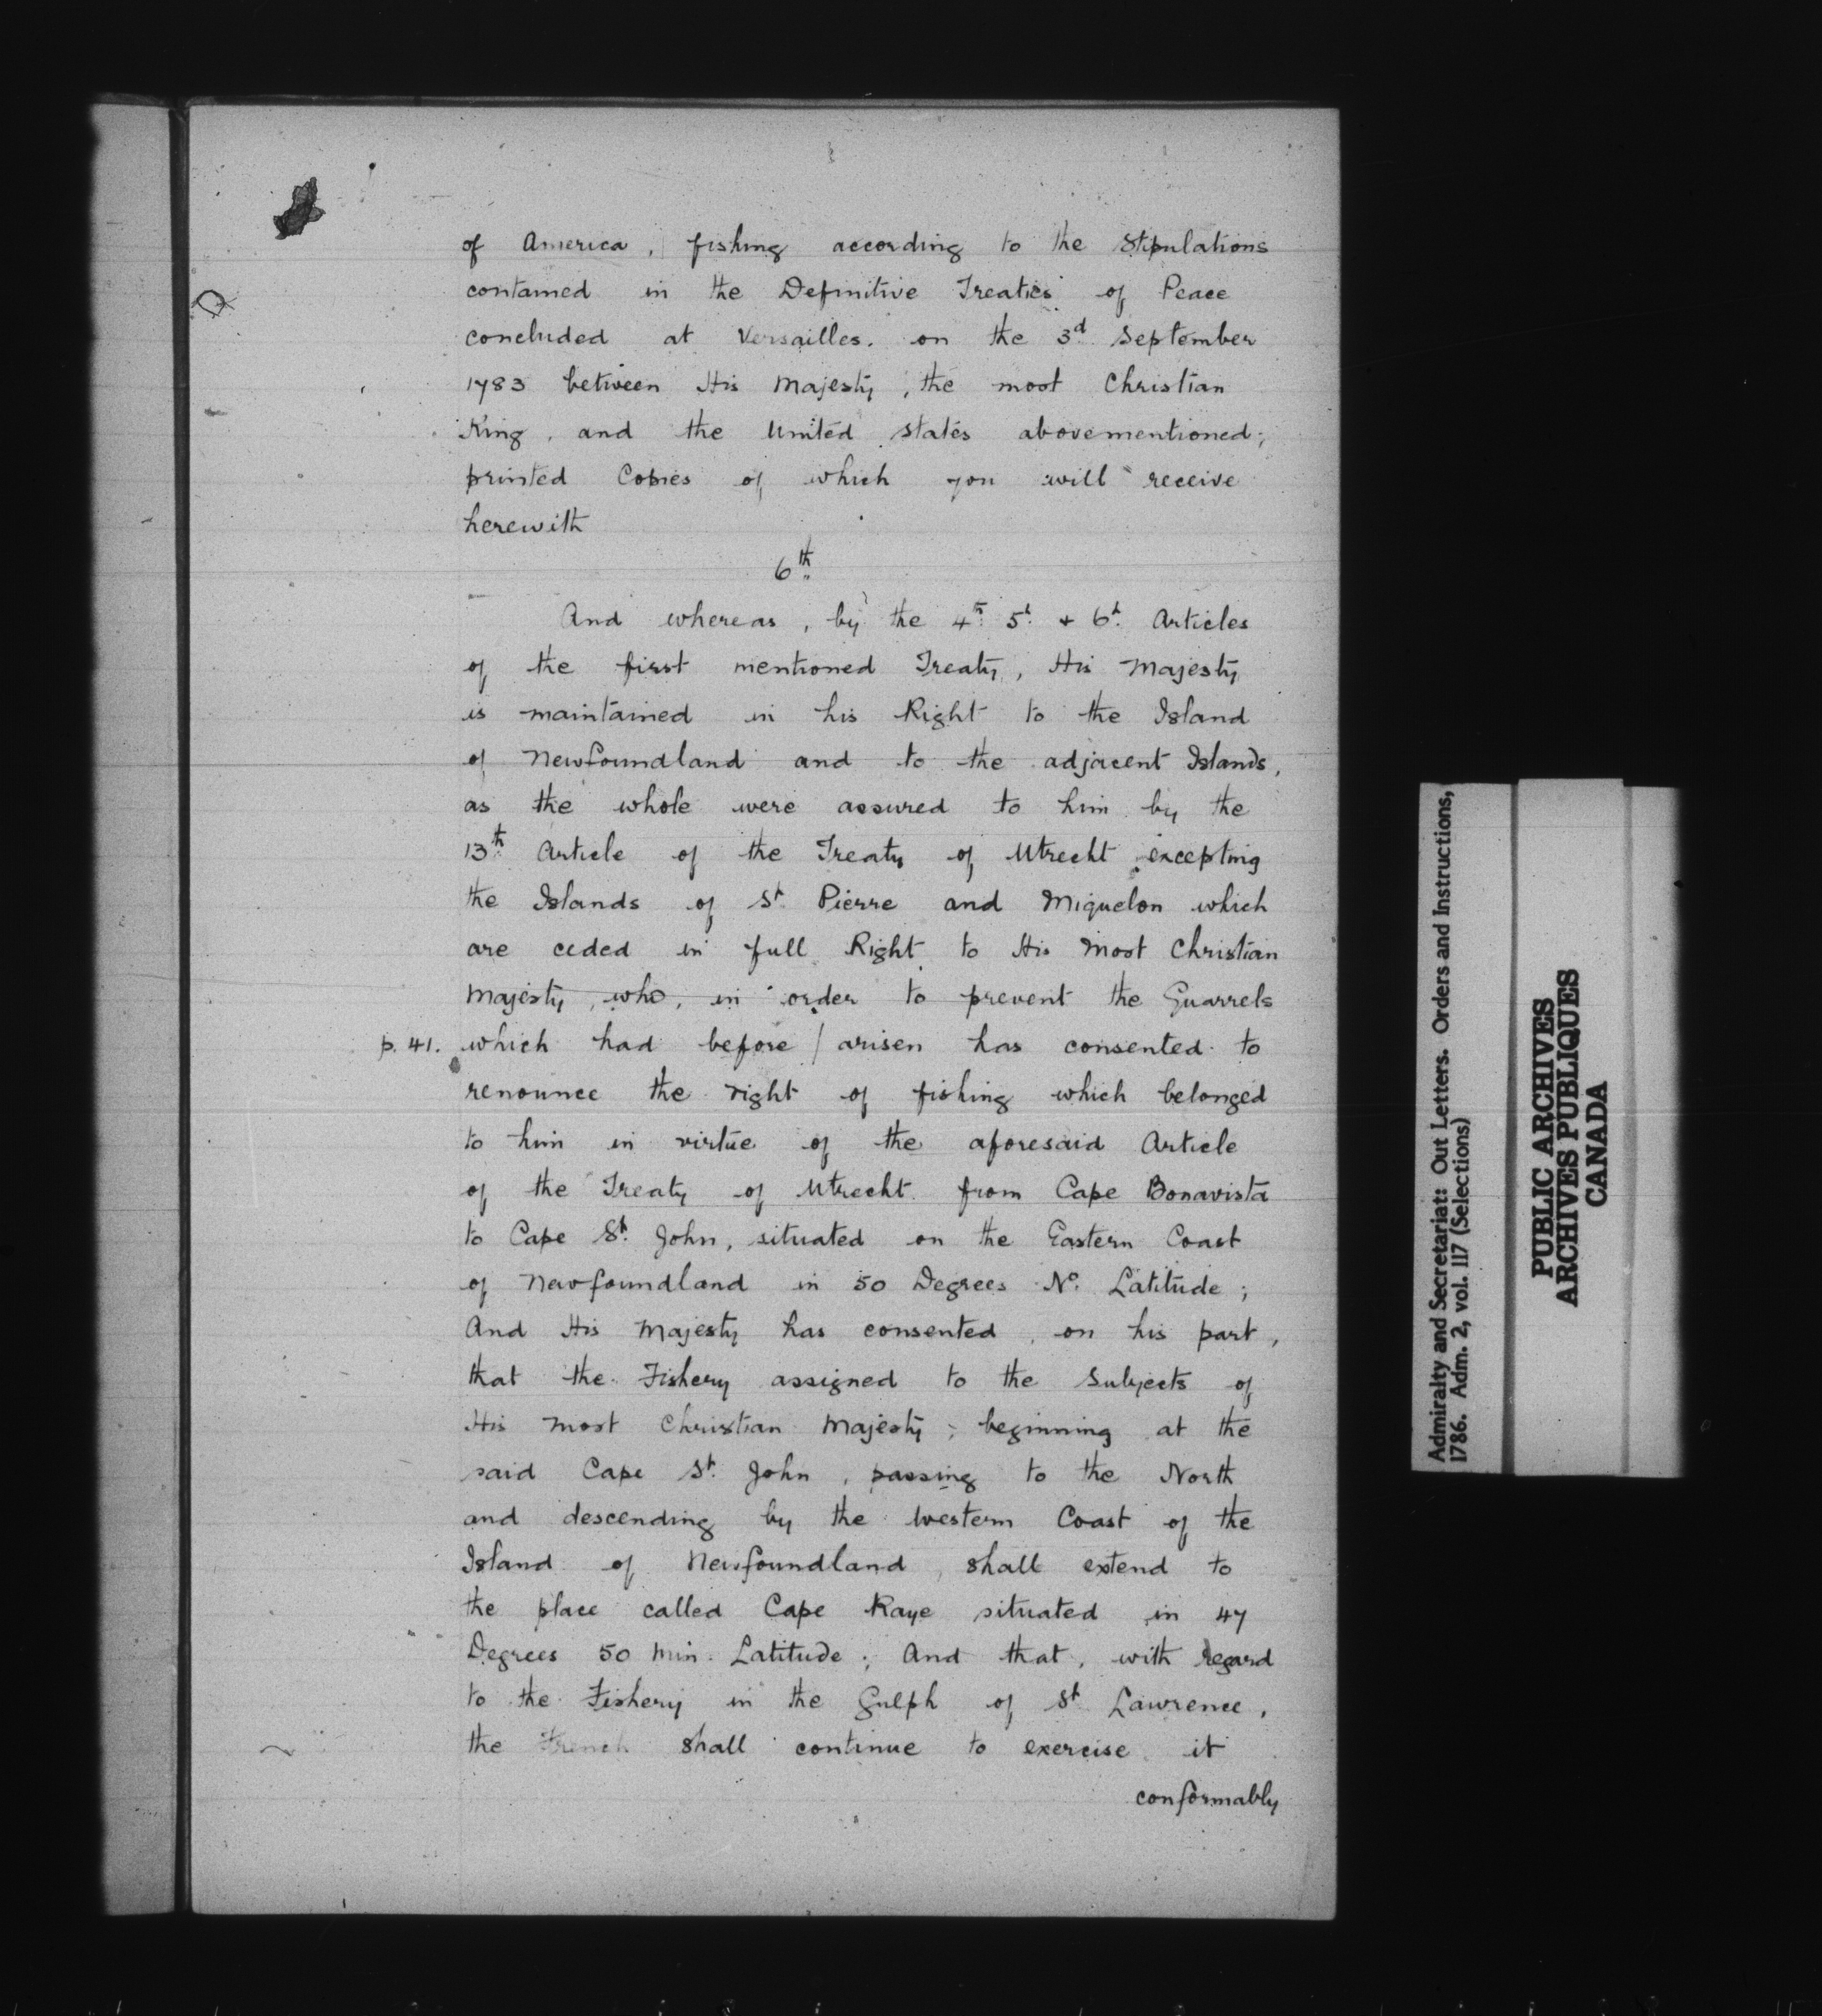 of America, fishing according to the Stipulations
contained in the Definitive Treaties of Peace
concluded at Versailles. on the 3d September
1783 between His Majesty, the most Christian
King, and the United States abovementioned;
printed Copies of which you will receive
herewith
6th
And whereas, by the 4th 5th & 6th Articles
of the first mentioned Treaty, His Majesty
is maintained in his Right to the Island
of Newfoundland and to the adjacent Islands,
as the whole were assured to him by the
13th Article of the Treaty of Utrecht excepting
the Islands of St Pierre and Miquelon which
are ceded in full Right to His Most Christian
Majesty, who, in order to prevent the Quarrels
p. 41. which had before / arisen has consented to
renounce the right of fishing which belonged
to him in virtue of the aforesaid Article
of the Treaty of Utrecht from Cape Bonavista
to Cape St. John, situated on the Eastern Coast
of Newfoundland in 50 Degrees No. Latitude;
And His Majesty has consented, on his part,
that the Fishery assigned to the Subjects of
His most Christian Majesty; beginning at the
said Cape St. John, passing to the North
and descending by the Western Coast of the
Island of Newfoundland, shall extend to
the place called Cape Raye situated in 47
Degrees 50 Min. Latitude; And that, with regard
to the Fishery in the Gulph of St Lawrence,
the French shall continue to exercise it
conformably
Admiralty and Secretariat: Out Letters. Orders and Instructions,
1786. Adm. 2, vol. 117 (Selections)
PUBLIC ARCHIVES
ARCHIVES PUBLIQUES
CANADA